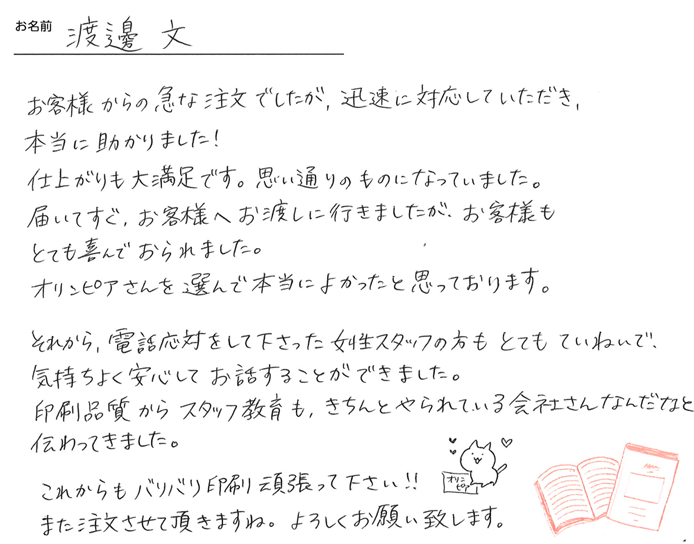 お名前 渡邊 文
お客様からの急な注文でしたが、迅速に対応していただき、
本当に助かりました!
仕上がりも大満足です。思い通りのものになっていました。
届いてすぐ、お客様へお渡しに行きましたが、お客様も
とても喜んでおられました。
オリンピアさんを選んで本当によかったと思っております。
それから、電話応対をして下さった女性スタッフの方もとてもていねいで、
気持ちよく安心してお話することができました。
印刷品質からスタッフ教育も、きちんとやられている会社さんなんだなと
伝わってきました。
これからもバリバリ印刷頑張って下さい!!
オリン
ピア
また注文させて頂きますね。よろしくお願い致します。